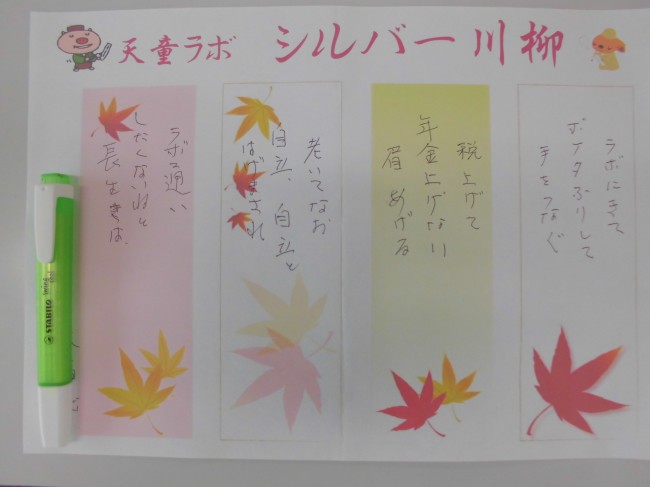 天童ラボ シルバー川柳
ラボにきて
ボケタふりして
手をつなぐ
税上げて
年金上げない
眉あげる
老いてなお
自立、自立と
はげまされ
ラボ通い
したくないねと
長生きは、
STABILO